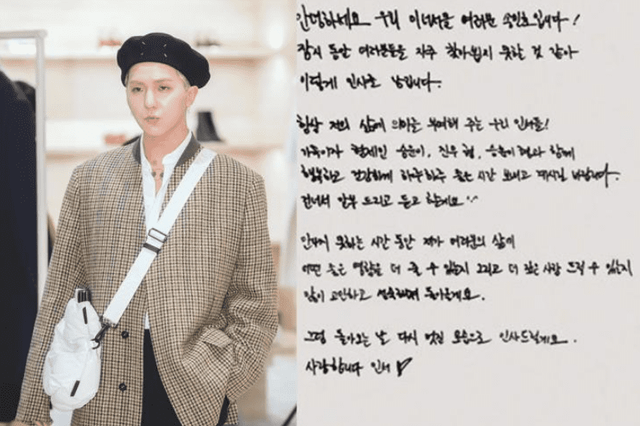 안녕하세요 우리 이너서클 여러분 송민호입니다!
잠시 동안 여러분들을 자주 찾아뵙지 못할 것 같아
이렇게 인사를 남깁니다.
항상 저의 삶에 의미를 부여해 주는 우리 인서들!
가족이자 형제인 승윤이, 진우 형, 승훈이 형과 함께
행복하고 건강하게 하루하루 좋은 시간 보내고 계시길 바랍니다.
건너서 안부 드리고 듣고 할게요
만나지 못하는 시간 동안 제가 여러분의 삶에
어떤 좋은 영향을 더 줄 수 있을지 그리고 더 깊은 사랑 드릴 수 있을지
많이 고민하고 성숙해져 돌아올게요.
그럼 돌아오는 날 다시 멋진 모습으로 인사드릴게요.
사랑합니다 인서